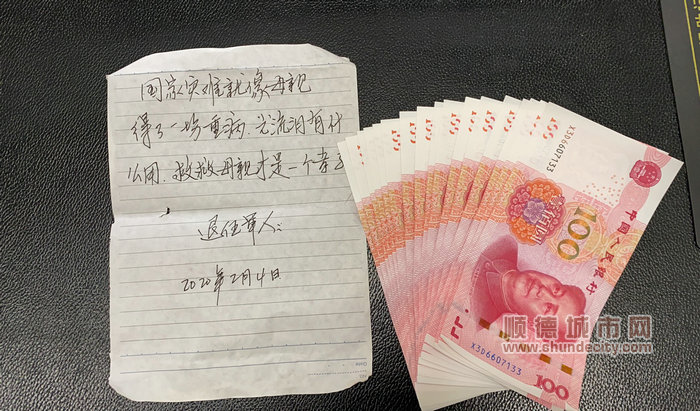 国家灾难就像母亲
得了一场重病.光流泪有什
么用.救救母亲才是一个孝子
退伍军人:
2020年2月4日
X3D6607133
中国人民银行
100
X3D6607133
100
顺德城市网
www.shundecity.com